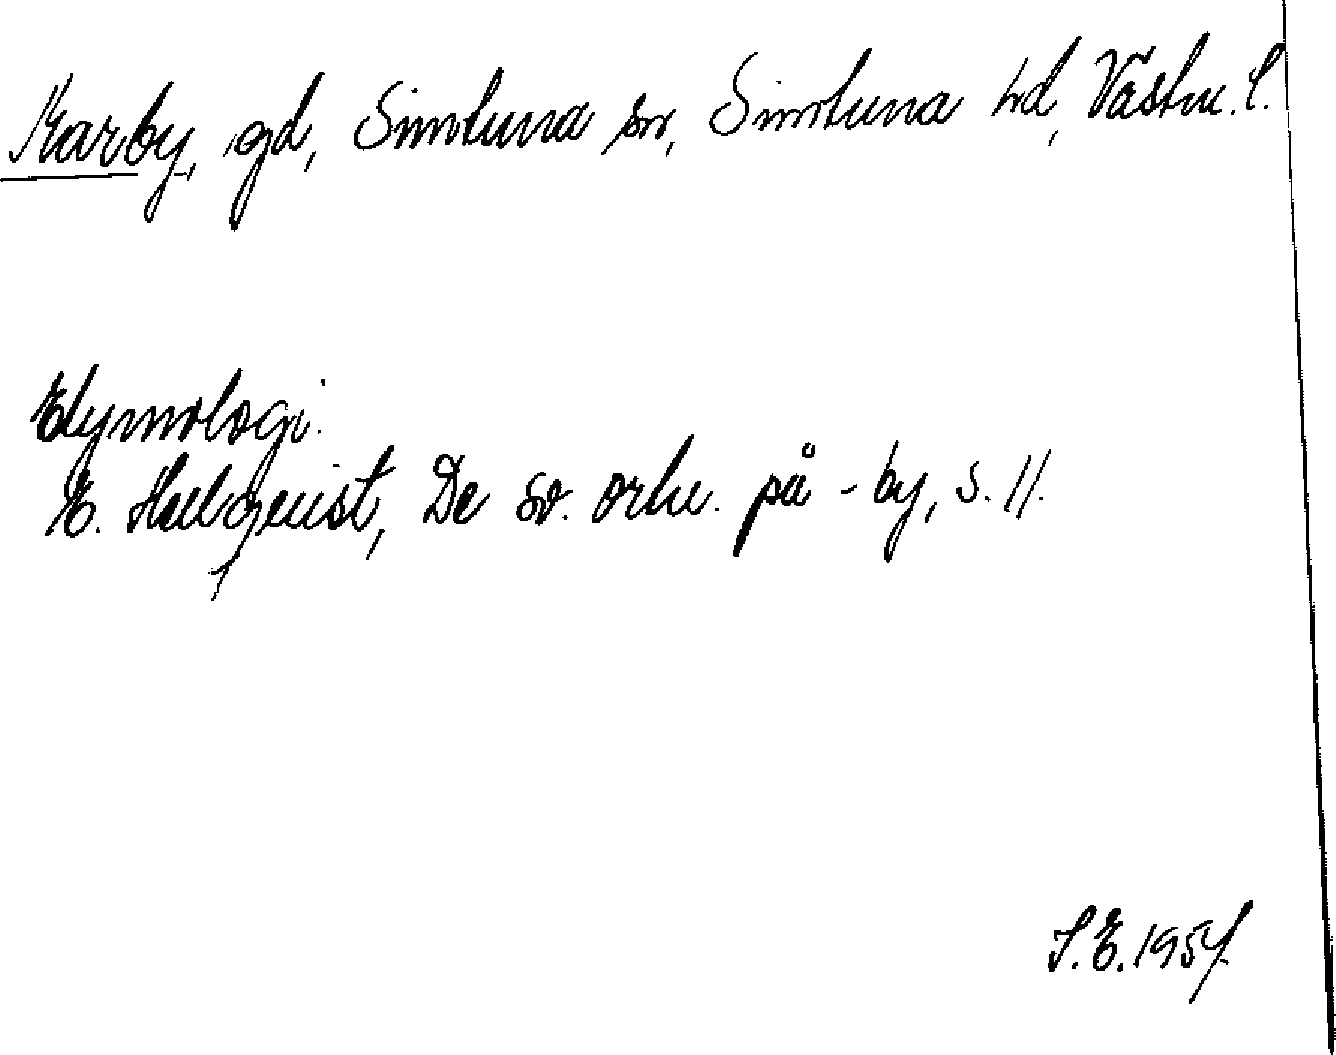 Karby, gd, Simtuna sn, Simtuna hd, Västm. l.
Etymologi.
E. Hellquist, De sv. ortn. på -by, s. 11.
S. E. 1957.